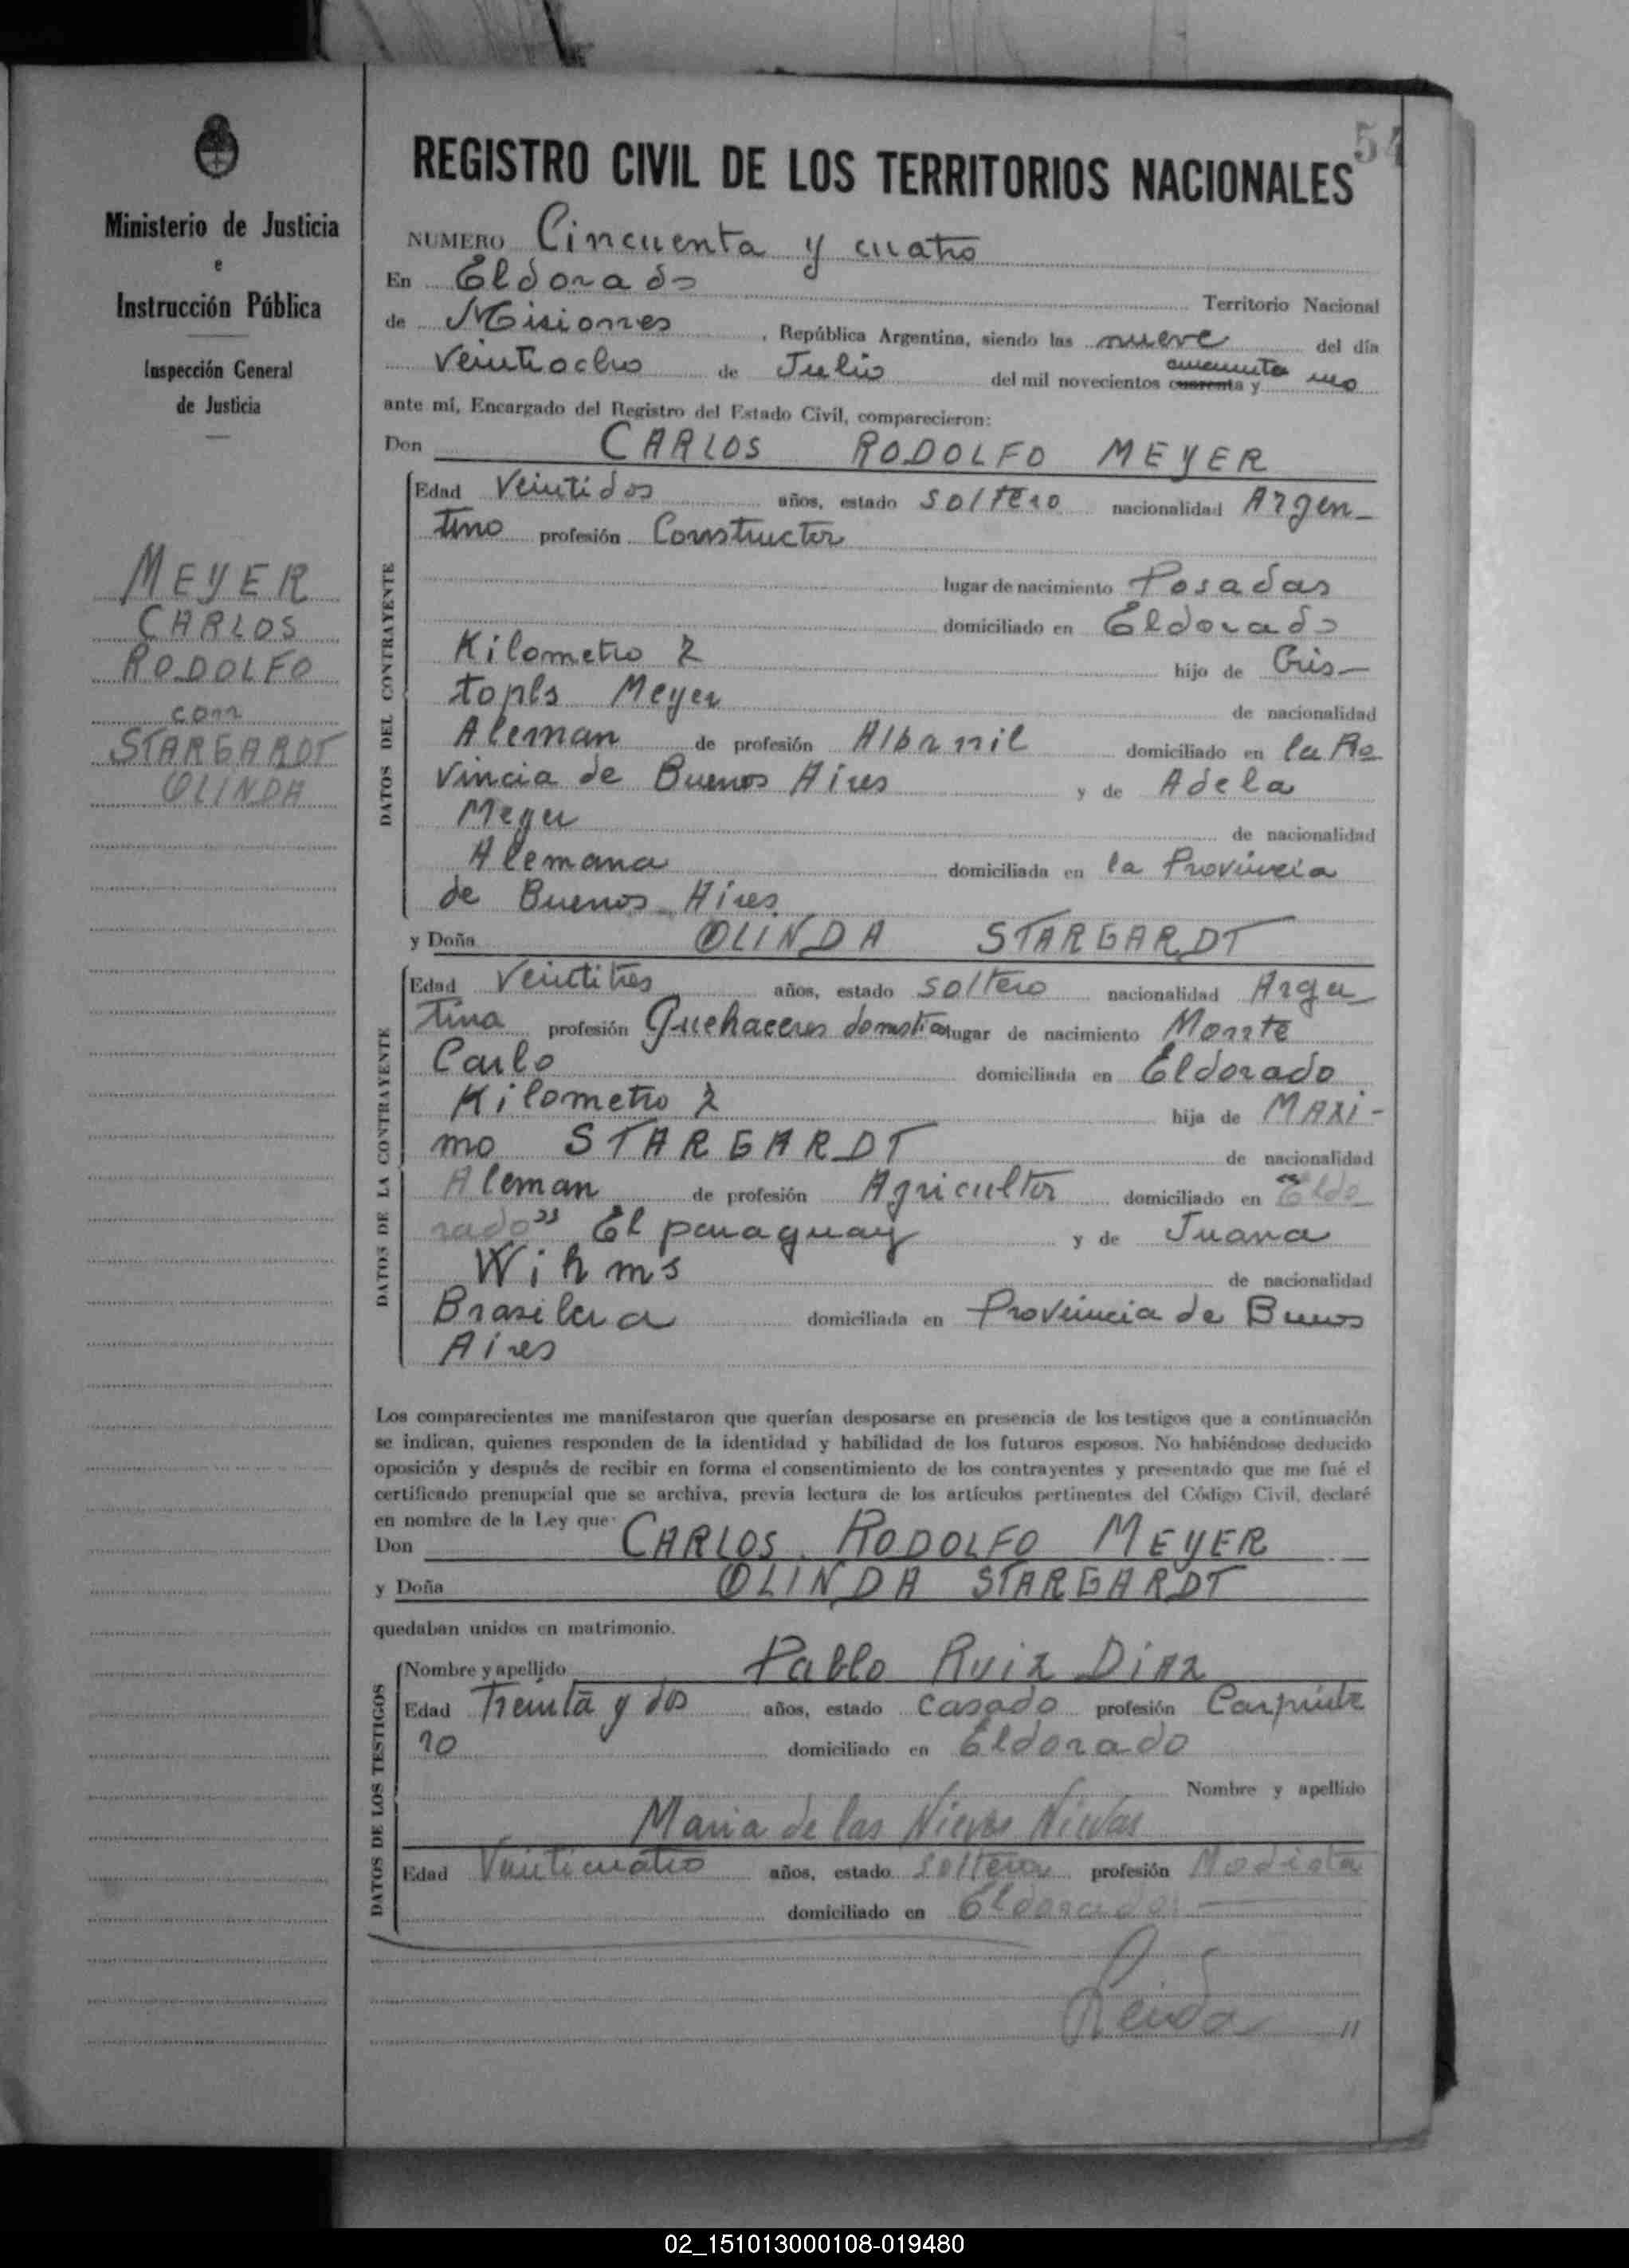 54
REGISTRO CIVIL DE LOS TERRITORIOS NACIONALES
Ministerio de Justicia
e
Instrucción Pública
Inspección General
de Justicia
MEYER
CARLOS
RODOLFO
con
STARGARDT
OLINDA
NUMERO Cincuenta y cuatro
En Eldorado Territorio Nacional
de Misiones, República Argentina, siendo las nueve del día
cincuenta
Veintiocho de Julio del mil novecientos cuarenta y uno
ante mí, Encargado del Registro del Estado Civil, comparecieron:
Don CARLOS RODOLFO MEYER
DATOS DEL CONTRAYENTE
Edad Veintidos años, estado soltero nacionalidad Argen-
tino profesión Constructor
lugar de nacimiento Posadas
domiciliado en Eldorado
Kilometro 2 hijo de Cris-
topls Meyer de nacionalidad
Aleman de profesión Albanil domiciliado en la Pro
vincia de Buenos Aires y de Adela
Meyer de nacionalidad
Alemana domiciliada en la Provincia
de Buenos Aires
y Doña OLINDA STARGARDT
DATOS DE LA CONTRAYENTE
Edad Veintitres años, estado soltero nacionalidad Argen
tina profesión Quehaceres domesticos lugar de nacimiento Monte
Carlo domiciliada en Eldorado
Kilometro 2 hija de MAXI-
mo STARGARDT de nacionalidad
Aleman de profesión Agricultor domiciliado en "Eldo
rado" El paraguay y de Juana
Wihms de nacionalidad
Brasilera domiciliada en Provincia de Buenos
Aires
Los comparecientes me manifestaron que querían desposarse en presencia de los testigos que a continuación
se indican, quienes responden de la identidad y habilidad de los futuros esposos. No habiéndose deducido
oposición y después de recibir en forma el consentimiento de los contrayentes y presentado que me fué el
certificado prenupcial que se archiva, previa lectura de los artículos pertinentes del Código Civil, declaré
en nombre de la Ley que:
Don CARLOS RODOLFO MEYER
y Doña OLINDA STARGARDT
quedaban unidos en matrimonio.
DATOS DE LOS TESTIGOS
Nombre y apellido Pablo Ruiz Diaz
Edad Treinta y dos años, estado casado profesión Carpinte
ro domiciliado en Eldorado
Nombre y apellido
Maria de las Nieves Nievas
Edad Veinticuatro años, estado soltera profesión Modista
domiciliado en Eldorado
02_151013000108-019480